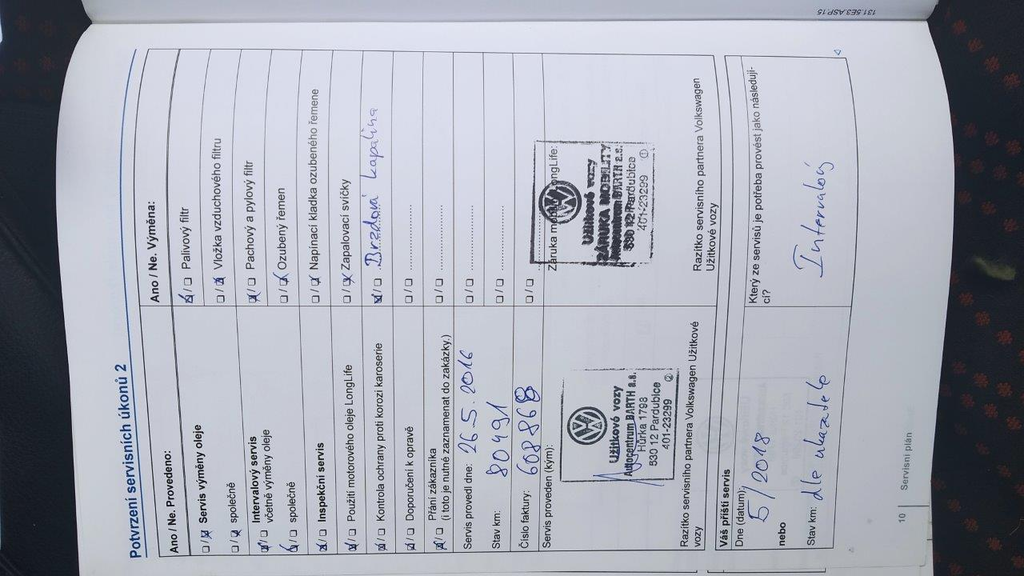 131.5E3.ASP.15
Potvrzení servisních úkonů 2
Ano / Ne. Provedeno:
Servis výměny oleje
společně
Intervalový servis
včetně výměny oleje
společně
Inspekční servis
Použití motorového oleje LongLife
Kontrola ochrany proti korozi karoserie
Doporučení k opravě
Přání zákazníka
(i toto je nutné zaznamenat do zakázky.)
Servis provedl dne: 26.5.2016
Stav km: 80491
Číslo faktury: 608868
Servis proveden (kým):
Užitkové vozy
Autocentrum BARTH a.s.
Hůrka 1798
530 12 Pardubice
401-23299 ②
Razítko servisního partnera Volkswagen Užitkové
vozy
Ano / Ne. Výměna:
Palivový filtr
Vložka vzduchového filtru
Pachový a pylový filtr
Ozubený řemen
Napínací kladka ozubeného řemene
Zapalovací svíčky
Brzdová kapalina
Záruka LongLife:
Užitkové vozy
ZÁRUKA MOBILITY
BARTH a.s.
530 12 Pardubice
401-23299 ①
Razítko servisního partnera Volkswagen
Užitkové vozy
Váš příští servis
Dne (datum):
5/2018
nebo
Stav km: dle ukazatele
Který ze servisů je potřeba provést jako následují-
cí?
Intervalový
10
Servisní plán